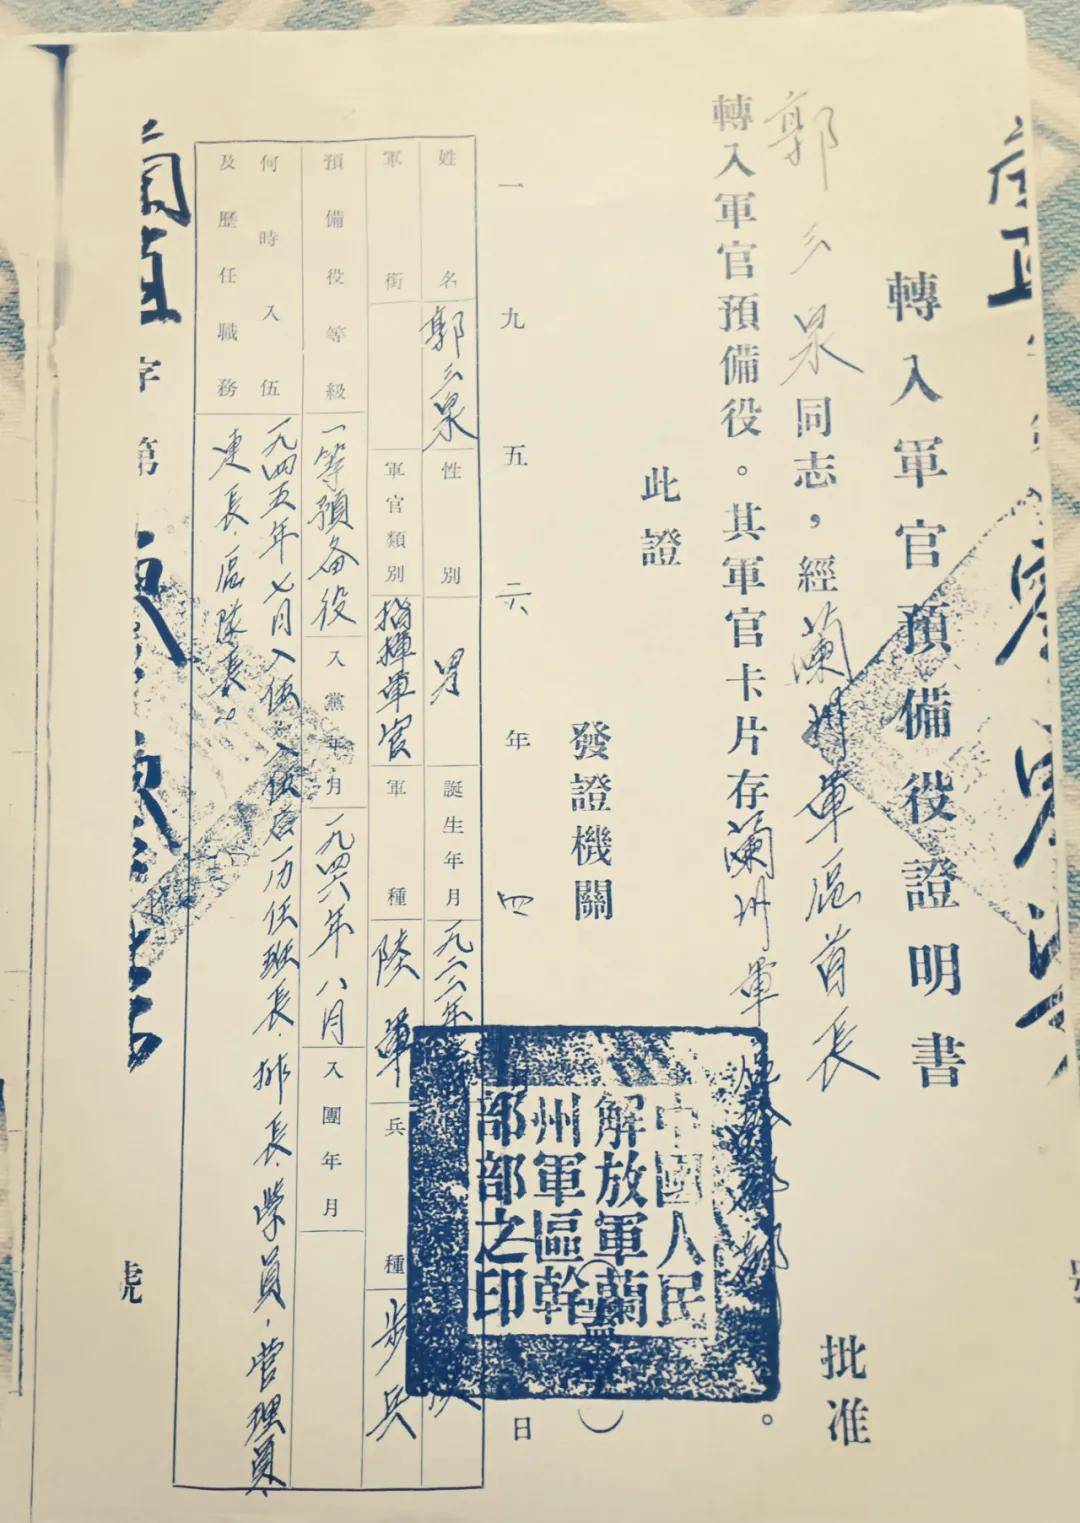 轉入軍官預備役證明書
郭三泉同志，經蘭州軍區首長批准
轉入軍官預備役。其軍官卡片存蘭州軍區幹部部。
此證
發證機關
中國人民
解放軍蘭
州軍區幹
部部之印
一九五六年四月 日
姓名 郭三泉 性別 男 誕生年月 一九二二年
軍銜 軍官類別 指揮軍官 軍種 陸軍 兵種 步兵
預備役等級 一等預备役 入黨年月 一九四六年八月 入團年月
何時入伍及歷任職務 一九四五年七月入伍。入伍后历任班長.排長.學員.管理員.
連長.區隊長。
字第 號